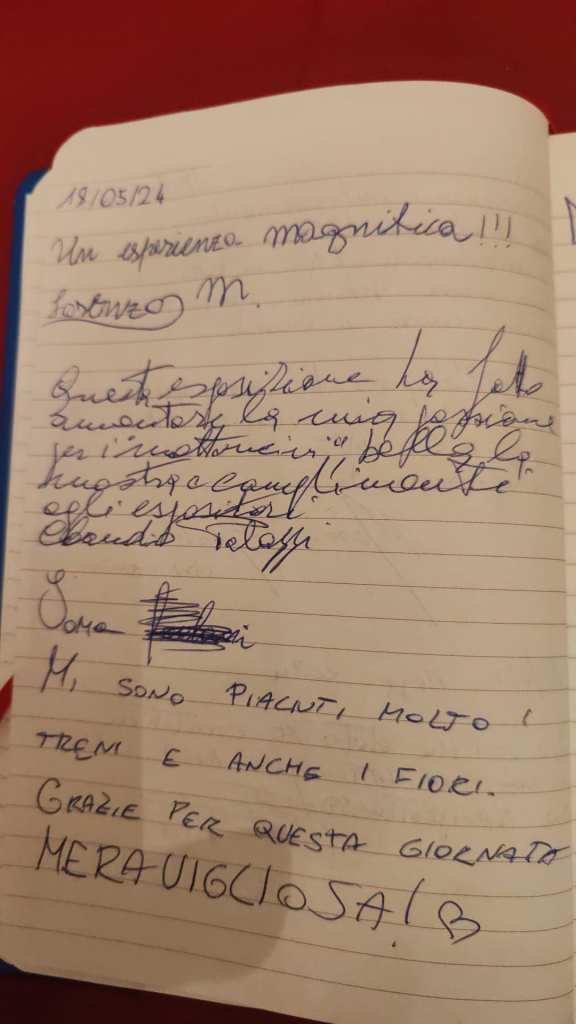 18/05/24
Un esperienza magnifica!!!
Lorenzo M.
Questa esposizione ha fatto
aumentare la mia passione
per i "mattoncini" bella la
mostra e complimenti
agli espositori.
Claudio
Mi SONO PIACIUTI MOLTO I
TRENI E ANCHE I FIORI.
GRAZIE PER QUESTA GIORNATA
MERAVIGLIOSA!